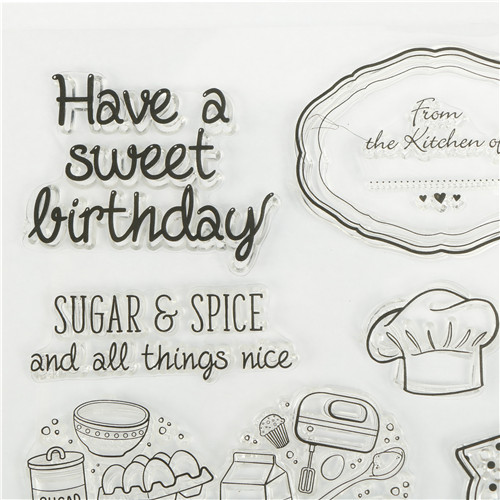 Have a
sweet
birthday
From
the Kitchen of
SUGAR & SPICE
and all things nice
SUGAR